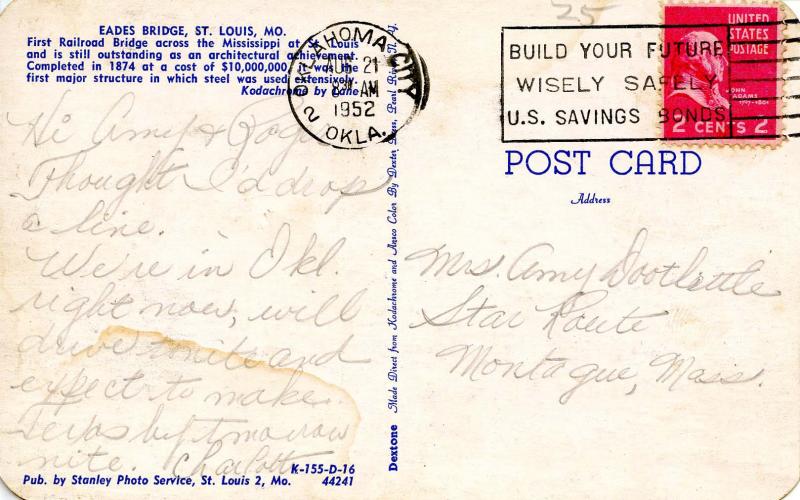 EADES BRIDGE, ST. LOUIS, MO.
First Railroad Bridge across the Mississippi at St. Louis
and is still outstanding as an architectural achievement.
Completed in 1874 at a cost of $10,000,000, it was the
first major structure in which steel was used extensively.
Kodachrome by Lane
Hi Amy & Roger
Thought I'd drop
a line.
We're in Okl.
right now, will
drive nite and
expect to make
Texas by tmorrow
nite. Charlott
K-155-D-16
Pub. by Stanley Photo Service, St. Louis 2, Mo. 44241
Dextone Made Direct from Kodachrome and Ansco Color By Dexter Press, Pearl River, N. Y.
OKLAHOMA CITY
21
8 AM
1952
2 OKLA.
25
BUILD YOUR FUTURE
WISELY SAFELY
U.S. SAVINGS BONDS
UNITED
STATES
POSTAGE
JOHN
ADAMS
1797-1801
2 CENTS 2
POST CARD
Address
Mrs. Amy Dootlittle
Star Route
Montague, Mass.